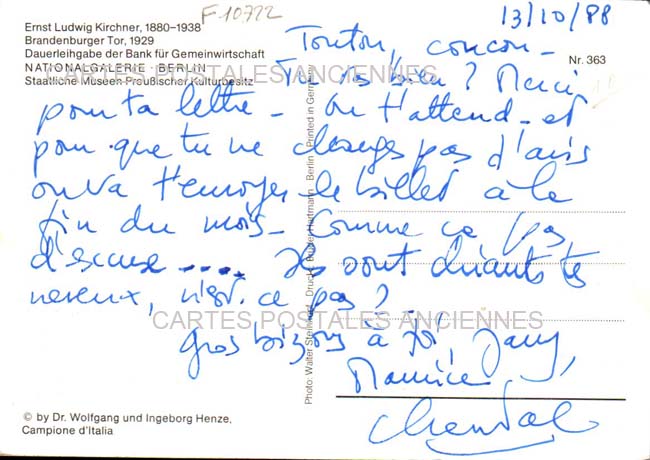 F 10722
13/10/88
Ernst Ludwig Kirchner, 1880–1938
Brandenburger Tor, 1929
Dauerleihgabe der Bank für Gemeinwirtschaft
NATIONALGALERIE · BERLIN
Staatliche Museen Preußischer Kulturbesitz
Nr. 363
CARTES POSTALES ANCIENNES
Tonton, coucou –
Tu vas bien ? Merci
pour ta lettre – On t'attend – et
pour que tu ne changes pas d'avis
on va t'envoyer le billet à la
fin du mois – Comme ça, pas
d'excuse ....
Ils sont chiants tes
neveux, n'est-ce pas ?
CARTES POSTALES ANCIENNES
Gros bisous à toi,
Maurice
Chantal
Photo: Walter Druck: Hartmann · Berlin · Printed in Germany
© by Dr. Wolfgang und Ingeborg Henze,
Campione d'Italia